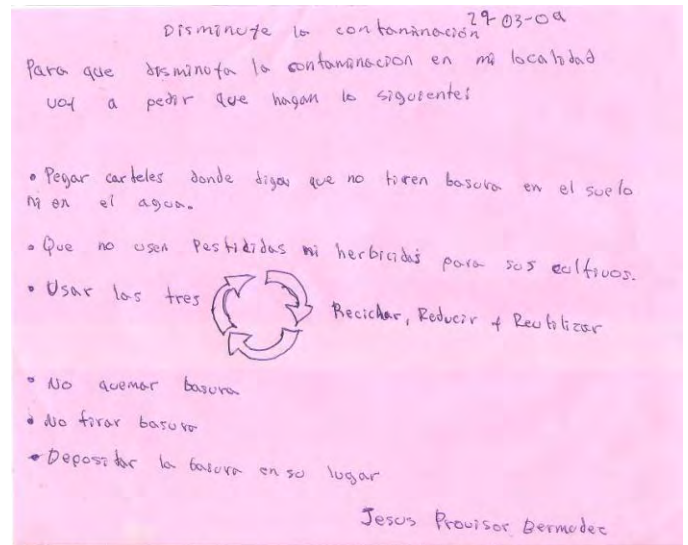 29-03-09
Disminuye la contaminación
Para que disminuya la contaminacion en mi localidad
voy a pedir que hagan lo siguiente:
• Pegar carteles donde digan que no tiren basura en el suelo
ni en el agua.
• Que no usen Pestididas ni herbicidas para sus cultivos.
• Usar las tres Reciclar, Reducir y Reutilizar
• No quemar basura
• No tirar basura
• Depositar la basura en su lugar
Jesus Provisor Bermudec